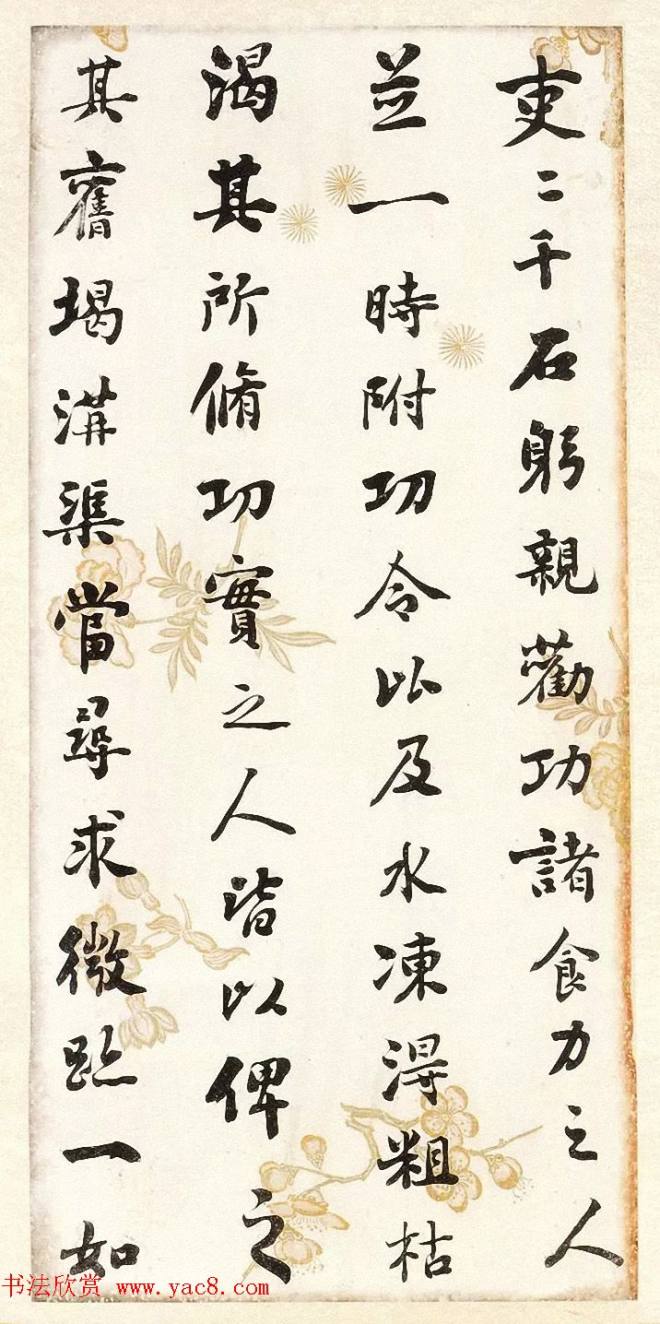 吏二千石躬親勸功諸食力之人
並一時附功令以及水凍得粗枯
渴其所脩功實之人皆以俾之
其舊堨溝渠當尋求微跡一如
书法欣赏 www.yac8.com